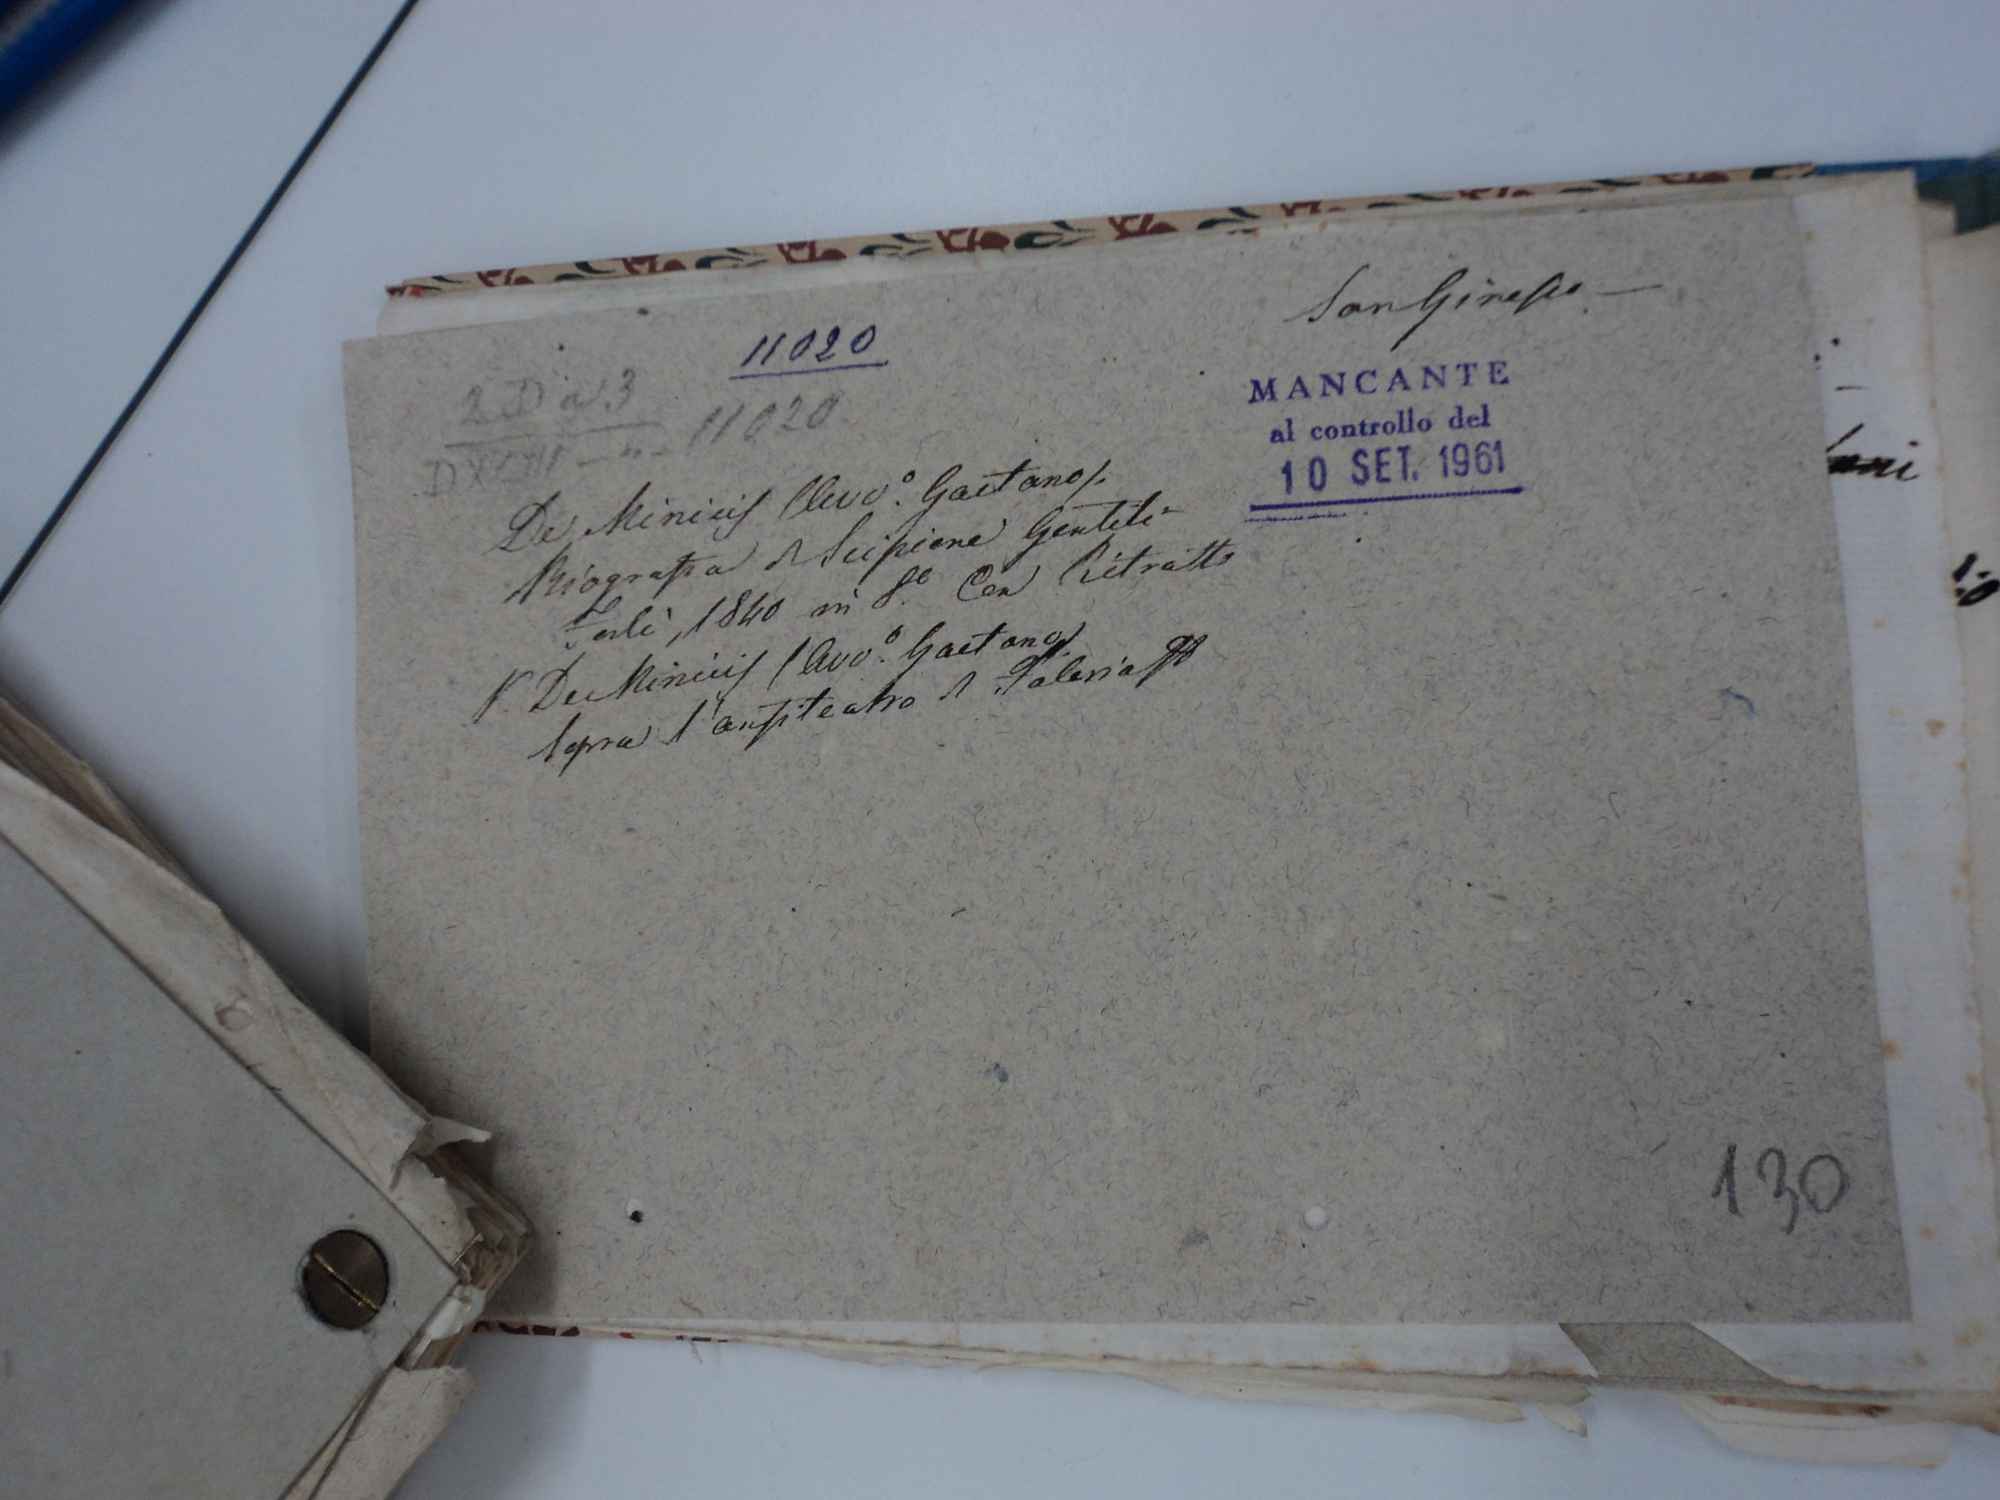 San Ginesio —
11020
MANCANTE
al controllo del
10 SET. 1961
2 D a 3
11020
De Minicis (Avv.º Gaetano).
Biografia di Scipione Gentili
Forlì, 1840 in 8.º Con Ritratto
V. De Minicis (Avv.º Gaetano)
Sopra l'anfiteatro di Faleria
130